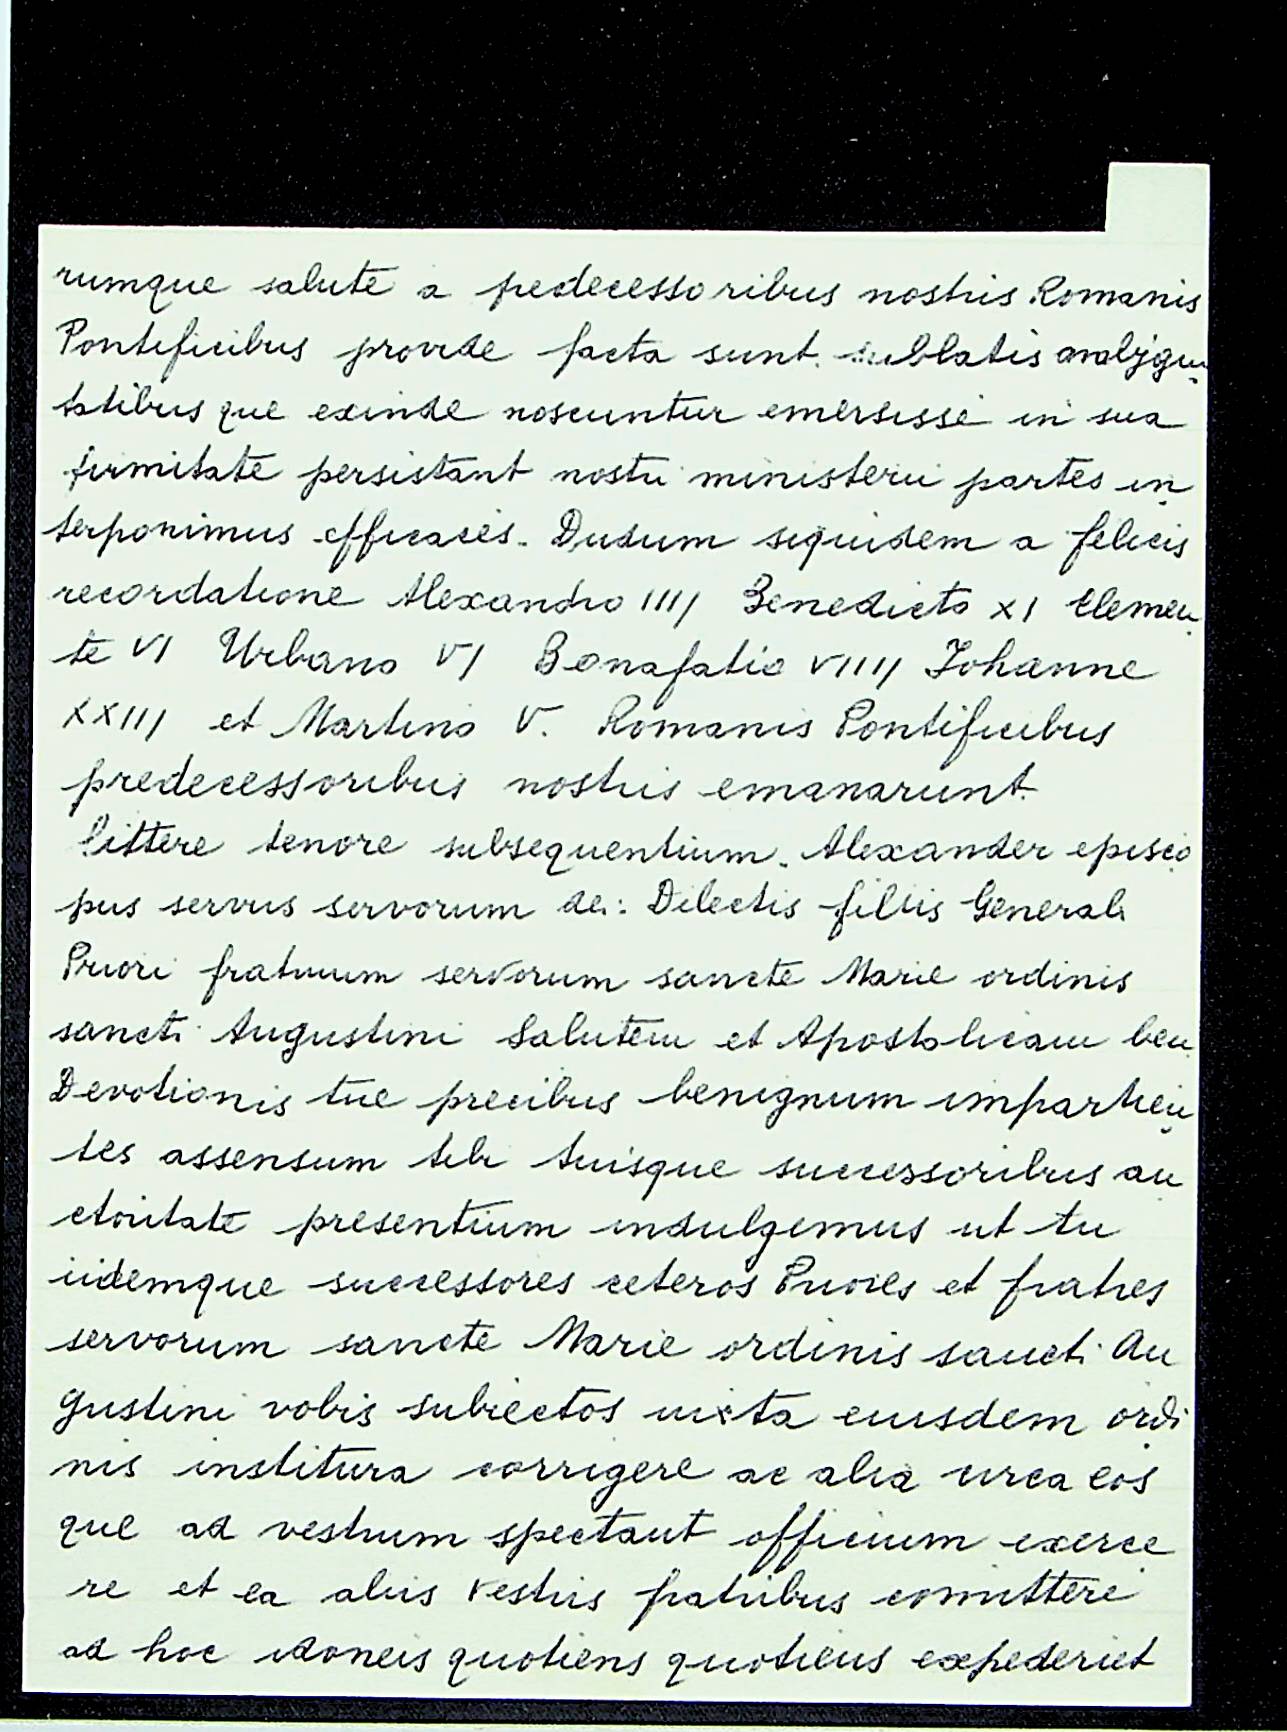 rumque salute a pedecessoribus nostris Romanis
Pontificibus provide facta sunt. sublatis ambigui
tatibus que exinde noscuntur emersisse in sua
firmitate persistant nostri ministerii partes in
terponimus efficaces. Dudum siquidem a felicis
recordatione Alexandro IIII Benedicto XI Clemen
te VI Urbano VI Bonafatio VIIII Johanne
XXIII et Martino V. Romanis Pontificibus
predecessoribus nostris emanarunt
littere tenore subsequentium. Alexander episco
pus servus servorum dei: Dilectis filiis Generali
Priori fratruum servorum sancte Marie ordinis
sancti Augustini Salutem et Apostolicam ben
Devotionis tue precibus benignum impartien
tes assensum tibi tuisque successoribus au
ctoritate presentium indulgemus ut tu
iidemque successores ceteros Priores et fratres
servorum sancte Marie ordinis sancti Au
gustini vobis subiectos iuxta eiusdem ordi
nis institura corrigere ac alia circa eos
que ad vestrum spectant officium exerce
re et ea aliis vestris fratribus comittere
ad hoc idoneis quotiens quotiens expederiet